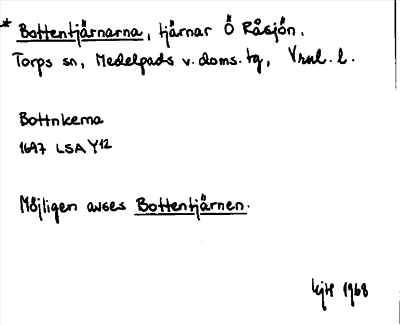 * Bottentjärnarna, tjärnar Ö Råsjön.
Torps sn, Medelpads v. doms. tg, Vrnl. l.
Bottnkerna
1697 LSA Y12
Möjligen avses Bottentjärnen.
1968